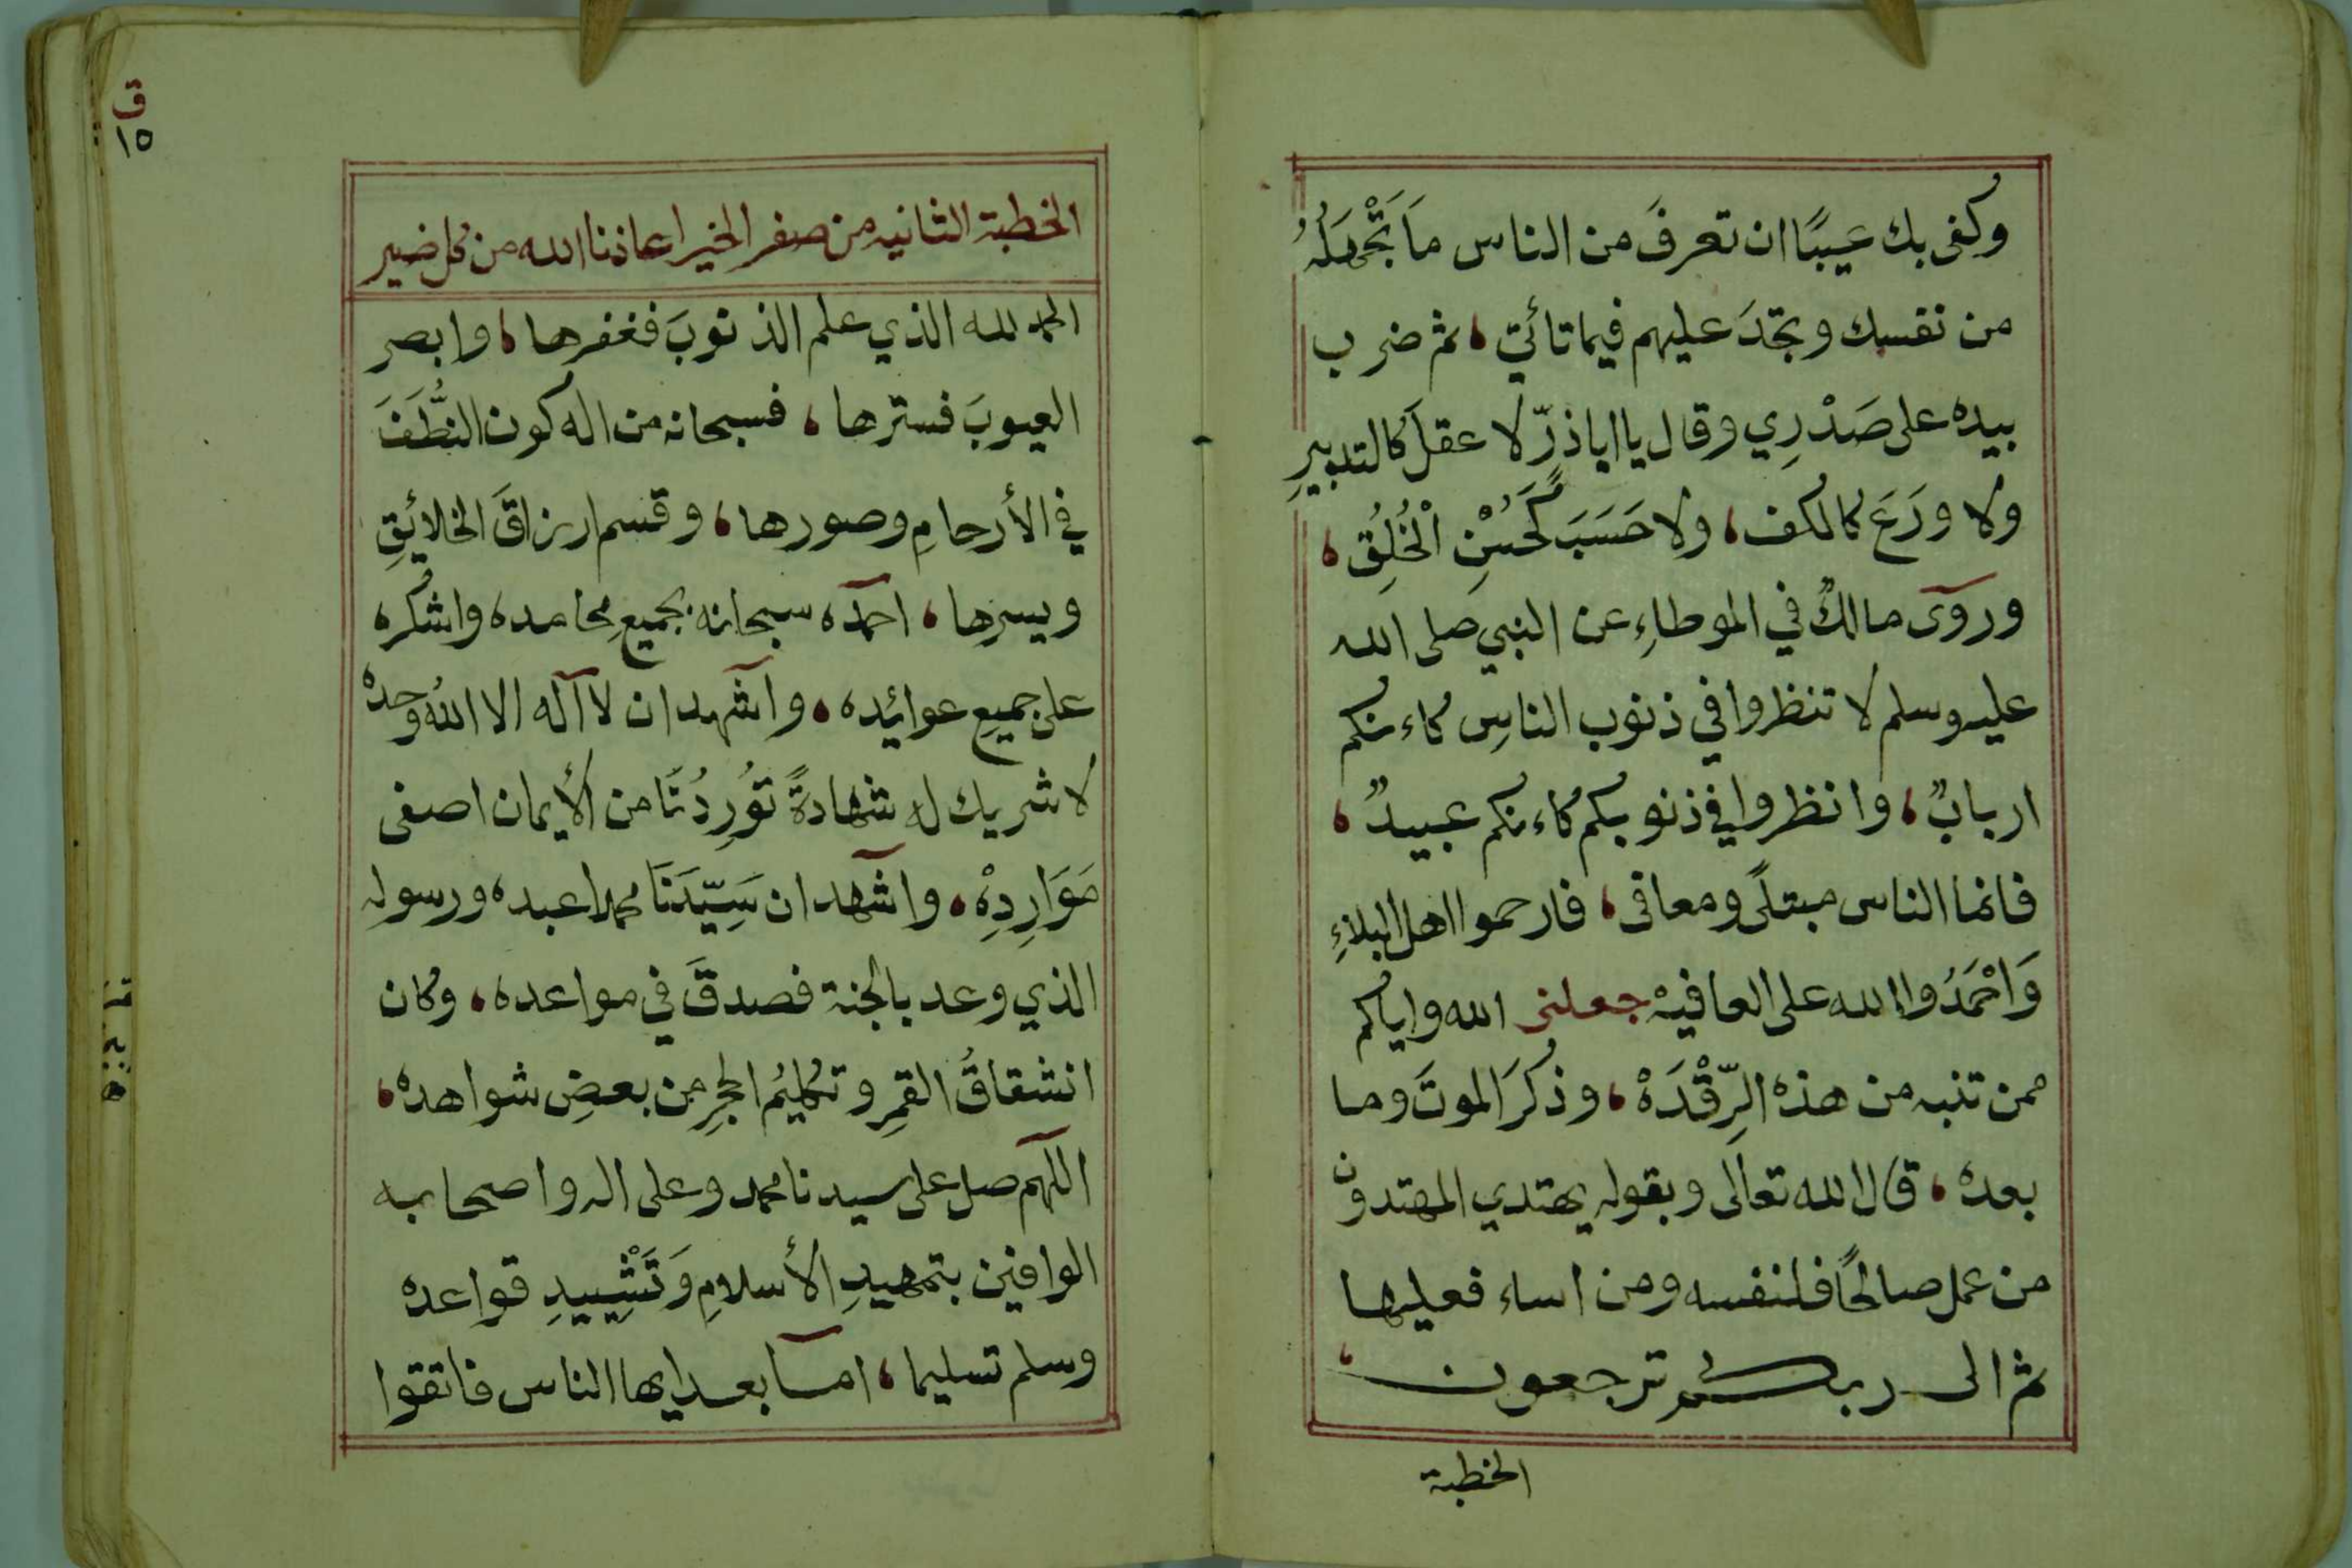 وكفى بك عيبًا ان تعرفَ من الناس مَا تَجْهَلُهُ
من نفسك وتجدَ عليهم فيما تأتي، ثم ضرب
بيده على صَدْرِي وقال يا ابا ذرّ لا عقلَ كالتدبيرِ
ولا وَرَعَ كالكف، ولا حَسَبَ كَحُسْنِ الْخُلُقِ،
وروى مالكٌ في الموطاءِ عن النبي صلى الله
عليه وسلم لا تنظروا في ذنوب الناسِ كاءنكم
اربابٌ، وانظروا في ذنوبكم كاءنكم عبيدٌ،
فانما الناس مبتلًى ومعافى، فارحموا اهل البلاءِ
وَاحْمَدُوا الله على العافيهْ جعلنى الله واياكم
ممن تنبه من هذه الرَّقْدَهْ، وذكرَ الموتَ وما
بعده، قال الله تعالى وبقوله يهتدي المهتدون
من عمل صالحًا فلنفسه ومن اساء فعليها
ثم الى ربكم ترجعون،
الخطبة
ق
١٥
الخطبة الثانيه من صفر الخير اعاذنا الله من كل ضير
الحمد لله الذي علم الذنوبَ فغفرها، وابصر
العيوبَ فسترها، فسبحانه من اله كون النُّطَفَ
في الأرحامِ وصورها، وقسم ارزاقَ الخلائِقِ
ويسرها، احمده سبحانه بجميعِ محامده واشكره
على جميعِ عوائده، واشهد ان لا آله الا اللهُ وحدهُ
لا شريك له شهادةً تُورِدُنَا من الأيمان اصفى
مَوَارِدِهْ، واشهد ان سَيِّدَنَا محمدا عبده ورسوله
الذي وعد بالجنة فصدقَ في مواعده، وكان
انشقاقُ القمرِ وتكليمُ الحجرِ من بعضِ شواهده،
اللهم صل على سيدنا محمد وعلى اله واصحابه
الوافين بتمهيدِ الأسلامِ وَتَشْييدِ قواعده
وسلم تسليما، اما بعد ايها الناس فاتقوا